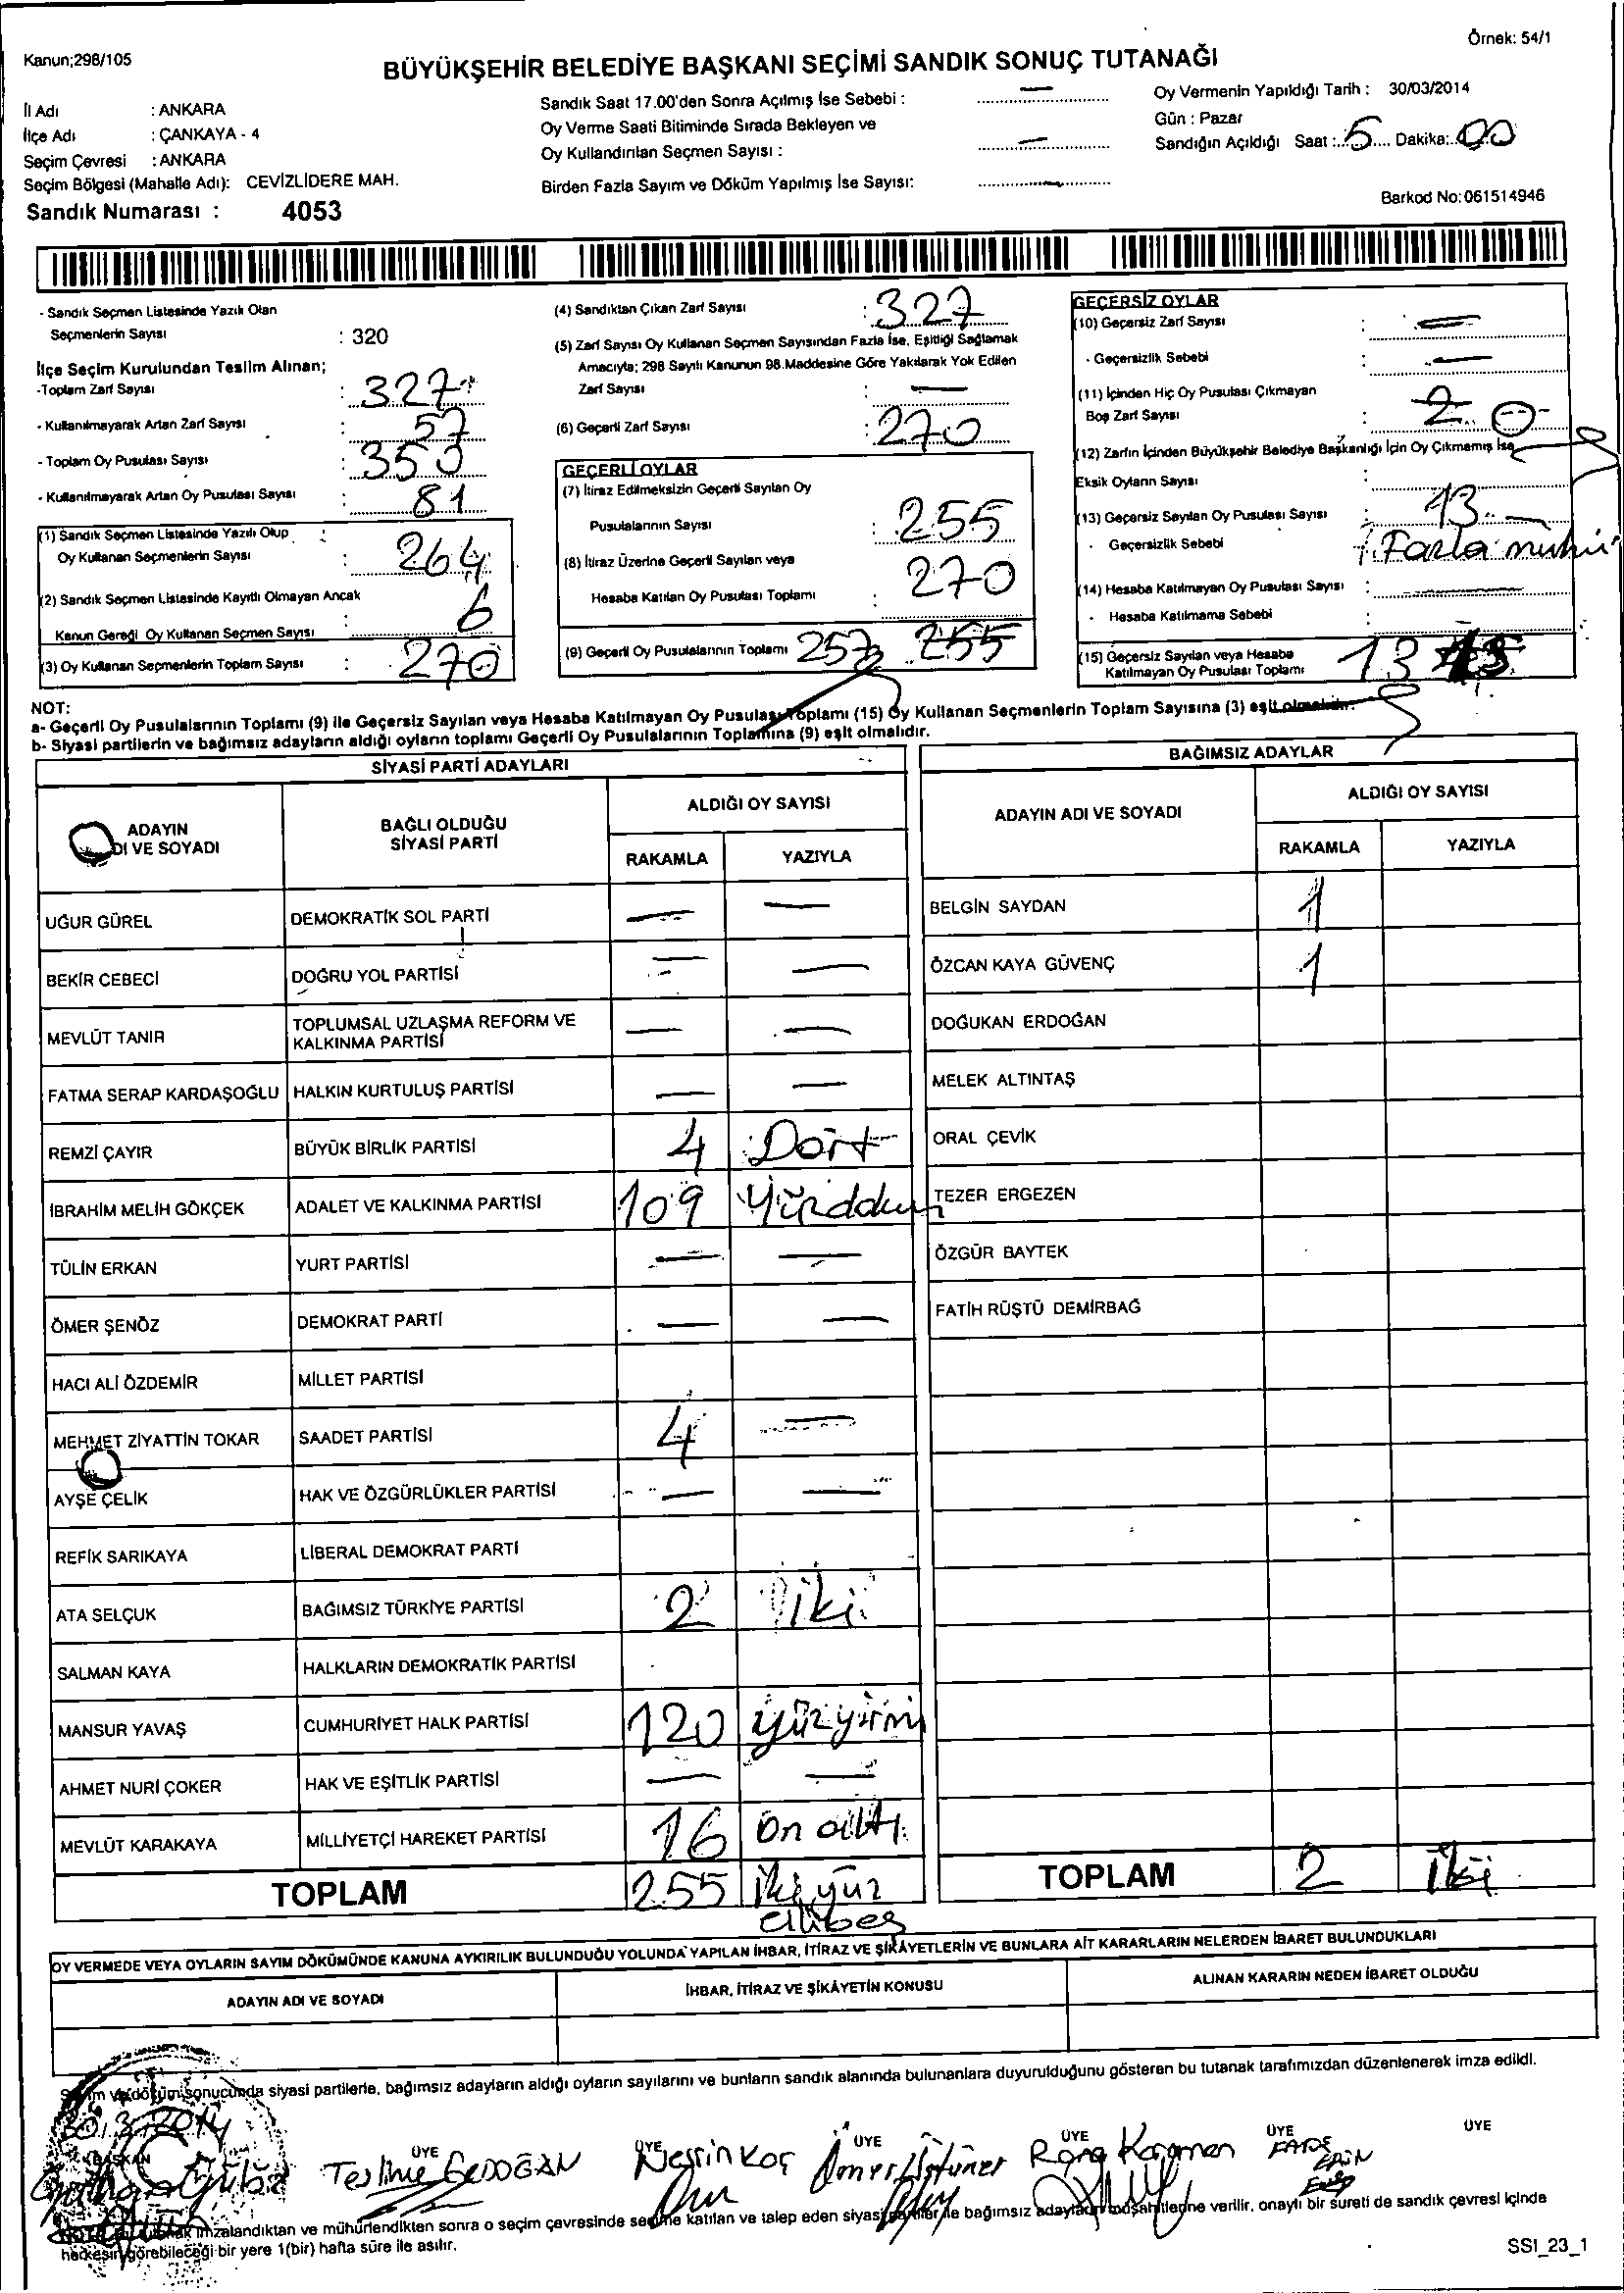 Örnek: 54/1
Kanun;298/105
BÜYÜKŞEHİR BELEDİYE BAŞKANI SEÇİMİ SANDIK SONUÇ TUTANAĞI
İl Adı : ANKARA
İlçe Adı : ÇANKAYA - 4
Seçim Çevresi : ANKARA
Seçim Bölgesi (Mahalle Adı): CEVİZLİDERE MAH.
Sandık Numarası : 4053
Sandık Saat 17.00'den Sonra Açılmış İse Sebebi : —
Oy Verme Saati Bitiminde Sırada Bekleyen ve
Oy Kullandırılan Seçmen Sayısı : —
Birden Fazla Sayım ve Döküm Yapılmış İse Sayısı: —
Oy Vermenin Yapıldığı Tarih : 30/03/2014
Gün : Pazar
Sandığın Açıldığı Saat : 5 Dakika: 00
Barkod No:061514946
- Sandık Seçmen Listesinde Yazılı Olan
Seçmenlerin Sayısı : 320
İlçe Seçim Kurulundan Teslim Alınan;
-Toplam Zarf Sayısı : 327
- Kullanılmayarak Artan Zarf Sayısı : 57
- Toplam Oy Pusulası Sayısı : 353
- Kullanılmayarak Artan Oy Pusulası Sayısı : 81
(1) Sandık Seçmen Listesinde Yazılı Olup :
Oy Kullanan Seçmenlerin Sayısı : 264
(2) Sandık Seçmen Listesinde Kayıtlı Olmayan Ancak
Kanun Gereği Oy Kullanan Seçmen Sayısı : 6
(3) Oy Kullanan Seçmenlerin Toplam Sayısı : 270
(4) Sandıktan Çıkan Zarf Sayısı : 327
(5) Zarf Sayısı Oy Kullanan Seçmen Sayısından Fazla İse, Eşitliği Sağlamak
Amacıyla; 298 Sayılı Kanunun 98.Maddesine Göre Yakılarak Yok Edilen
Zarf Sayısı : —
(6) Geçerli Zarf Sayısı : 270
GEÇERLİ OYLAR
(7) İtiraz Edilmeksizin Geçerli Sayılan Oy
Pusulalarının Sayısı : 255
(8) İtiraz Üzerine Geçerli Sayılan veya
Hesaba Katılan Oy Pusulası Toplamı : 270
(9) Geçerli Oy Pusulalarının Toplamı 257 255
GEÇERSİZ OYLAR
(10) Geçersiz Zarf Sayısı : —
- Geçersizlik Sebebi : —
(11) İçinden Hiç Oy Pusulası Çıkmayan
Boş Zarf Sayısı : 2 0
(12) Zarfın İçinden Büyükşehir Belediye Başkanlığı İçin Oy Çıkmamış İse
Eksik Oyların Sayısı :
(13) Geçersiz Sayılan Oy Pusulası Sayısı : 13
- Geçersizlik Sebebi : Fazla mühür
(14) Hesaba Katılmayan Oy Pusulası Sayısı : —
- Hesaba Katılmama Sebebi :
(15) Geçersiz Sayılan veya Hesaba
Katılmayan Oy Pusulası Toplamı 13
NOT:
a- Geçerli Oy Pusulalarının Toplamı (9) ile Geçersiz Sayılan veya Hesaba Katılmayan Oy Pusulası Toplamı (15) Oy Kullanan Seçmenlerin Toplam Sayısına (3) eşit olmalıdır.
b- Siyasi partilerin ve bağımsız adayların aldığı oyların toplamı Geçerli Oy Pusulalarının Toplamına (9) eşit olmalıdır.
SİYASİ PARTİ ADAYLARI
ADAYIN ADI VE SOYADI BAĞLI OLDUĞU SİYASİ PARTİ ALDIĞI OY SAYISI
RAKAMLA YAZIYLA
UĞUR GÜREL DEMOKRATİK SOL PARTİ — —
BEKİR CEBECİ DOĞRU YOL PARTİSİ — —
MEVLÜT TANIR TOPLUMSAL UZLAŞMA REFORM VE KALKINMA PARTİSİ — —
FATMA SERAP KARDAŞOĞLU HALKIN KURTULUŞ PARTİSİ — —
REMZİ ÇAYIR BÜYÜK BİRLİK PARTİSİ 4 Dört
İBRAHİM MELİH GÖKÇEK ADALET VE KALKINMA PARTİSİ 109
TÜLİN ERKAN YURT PARTİSİ — —
ÖMER ŞENÖZ DEMOKRAT PARTİ — —
HACI ALİ ÖZDEMİR MİLLET PARTİSİ
MEHMET ZİYATTİN TOKAR SAADET PARTİSİ 4 —
AYŞE ÇELİK HAK VE ÖZGÜRLÜKLER PARTİSİ — —
REFİK SARIKAYA LİBERAL DEMOKRAT PARTİ
ATA SELÇUK BAĞIMSIZ TÜRKİYE PARTİSİ 2 iki
SALMAN KAYA HALKLARIN DEMOKRATİK PARTİSİ
MANSUR YAVAŞ CUMHURİYET HALK PARTİSİ 120 yüzyirmi
AHMET NURİ ÇOKER HAK VE EŞİTLİK PARTİSİ — —
MEVLÜT KARAKAYA MİLLİYETÇİ HAREKET PARTİSİ 16 on altı
TOPLAM 255 İki yüz
ellibeş
BAĞIMSIZ ADAYLAR
ADAYIN ADI VE SOYADI ALDIĞI OY SAYISI
RAKAMLA YAZIYLA
BELGİN SAYDAN 1
ÖZCAN KAYA GÜVENÇ 1
DOĞUKAN ERDOĞAN
MELEK ALTINTAŞ
ORAL ÇEVİK
TEZER ERGEZEN
ÖZGÜR BAYTEK
FATİH RÜŞTÜ DEMİRBAĞ
TOPLAM 2 İki
OY VERMEDE VEYA OYLARIN SAYIM DÖKÜMÜNDE KANUNA AYKIRILIK BULUNDUĞU YOLUNDA YAPILAN İHBAR, İTİRAZ VE ŞİKÂYETLERİN VE BUNLARA AİT KARARLARIN NELERDEN İBARET BULUNDUKLARI
ADAYIN ADI VE SOYADI İHBAR, İTİRAZ VE ŞİKÂYETİN KONUSU ALINAN KARARIN NEDEN İBARET OLDUĞU
Sayım ve döküm sonucunda siyasi partilerle, bağımsız adayların aldığı oyların sayılarını ve bunların sandık alanında bulunanlara duyurulduğunu gösteren bu tutanak tarafımızdan düzenlenerek imza edildi.
30.3.2014
BAŞKAN ÜYE ÜYE ÜYE ÜYE ÜYE ÜYE
Teslime ERDOĞAN Nesrin Koç Ömer Üstüner
imzalandıktan ve mühürlendikten sonra o seçim çevresinde seçime katılan ve talep eden siyasi partiler ile bağımsız adayların müşahitlerine verilir, onaylı bir sureti de sandık çevresi içinde
herkesin görebileceği bir yere 1(bir) hafta süre ile asılır.
SSI_23_1